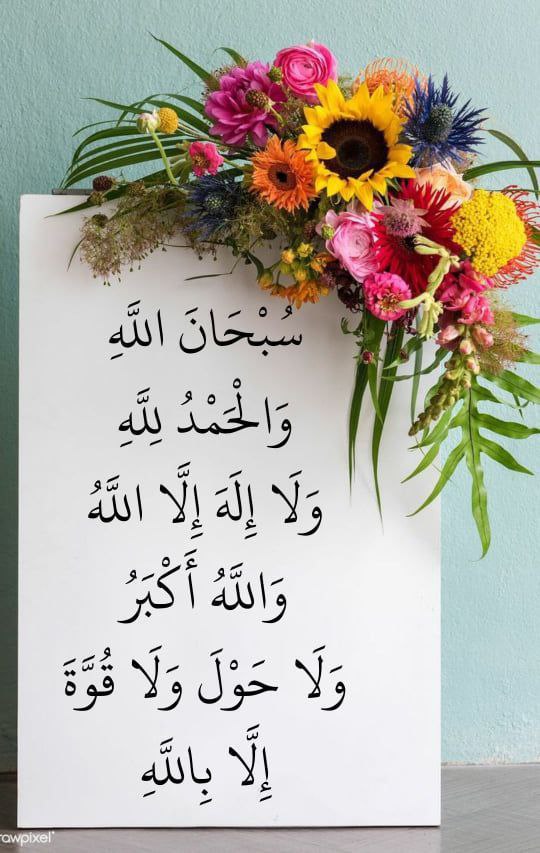 سُبْحَانَ اللَّهِ
وَالْحَمْدُ لِلَّهِ
وَلَا إِلَهَ إِلَّا اللَّهُ
وَاللَّهُ أَكْبَرُ
وَلَا حَوْلَ وَلَا قُوَّةَ
إِلَّا بِاللَّهِ
rawpixel